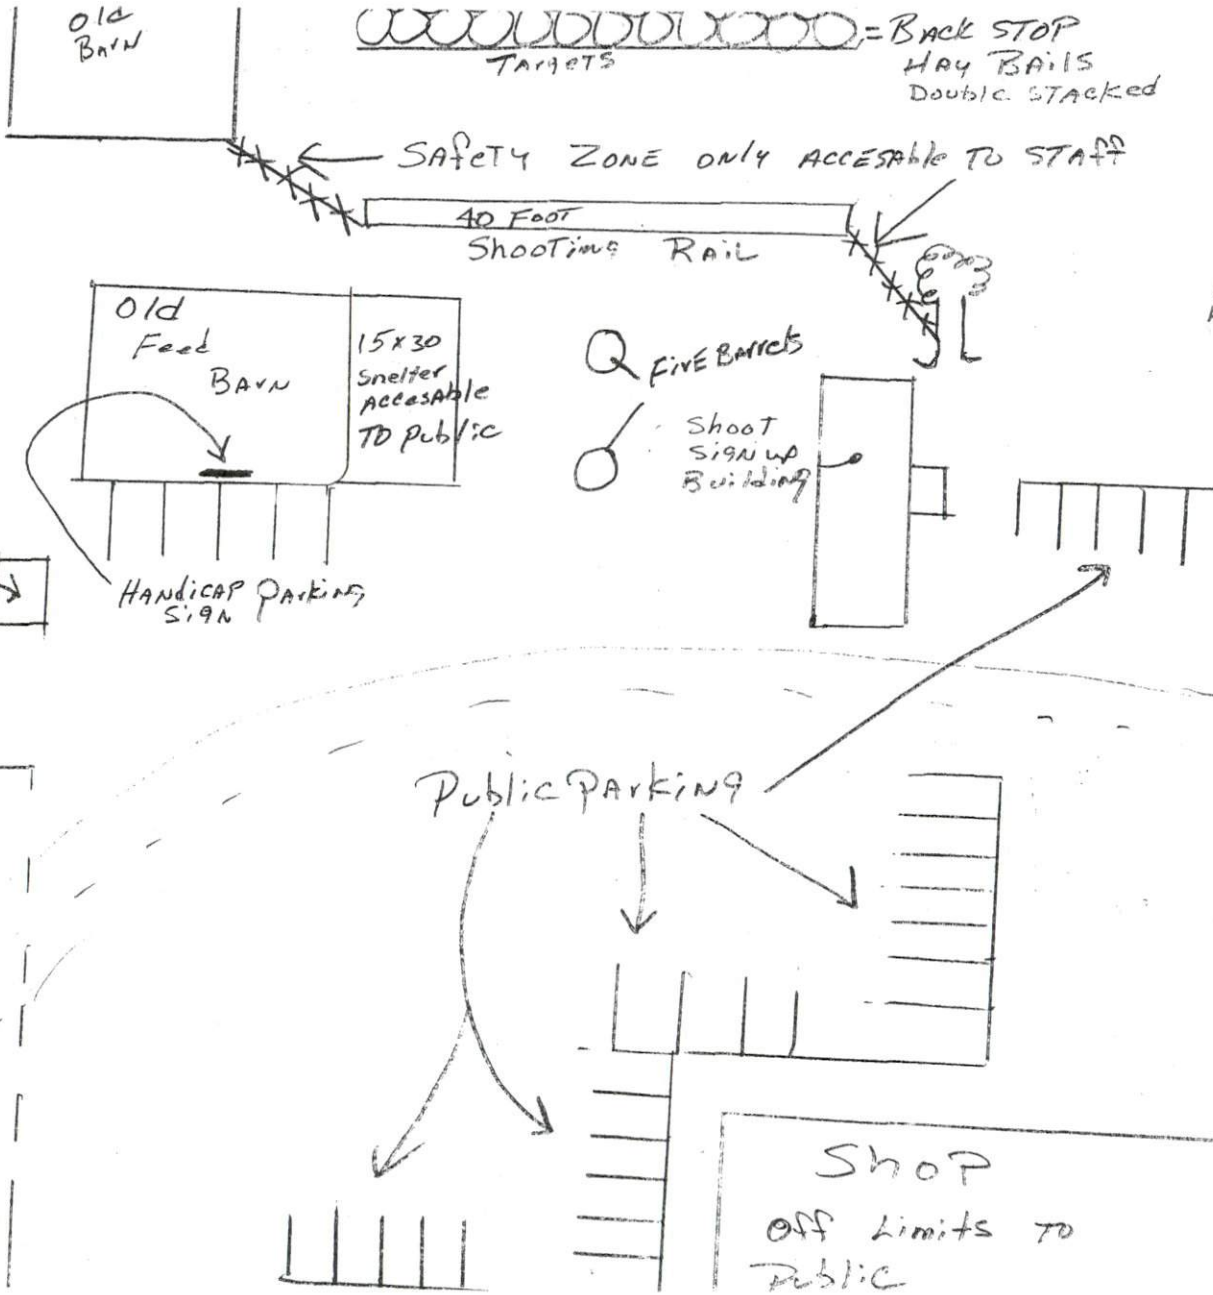 Old
Barn
= BACK STOP
HAY BAilS
Double STACKed
TArgeTS
SAfeTY ZONE only ACCESAble TO STAff
40 FooT
ShooTing RAiL
Old
Feed
BArN
15x30
Shelter
ACCesAble
TO Public
FirE BArrels
ShooT
SigN up
Building
HANdiCAP PArkiNg
SigN
Public PArkiNg
ShoP
Off Limits TO
Public